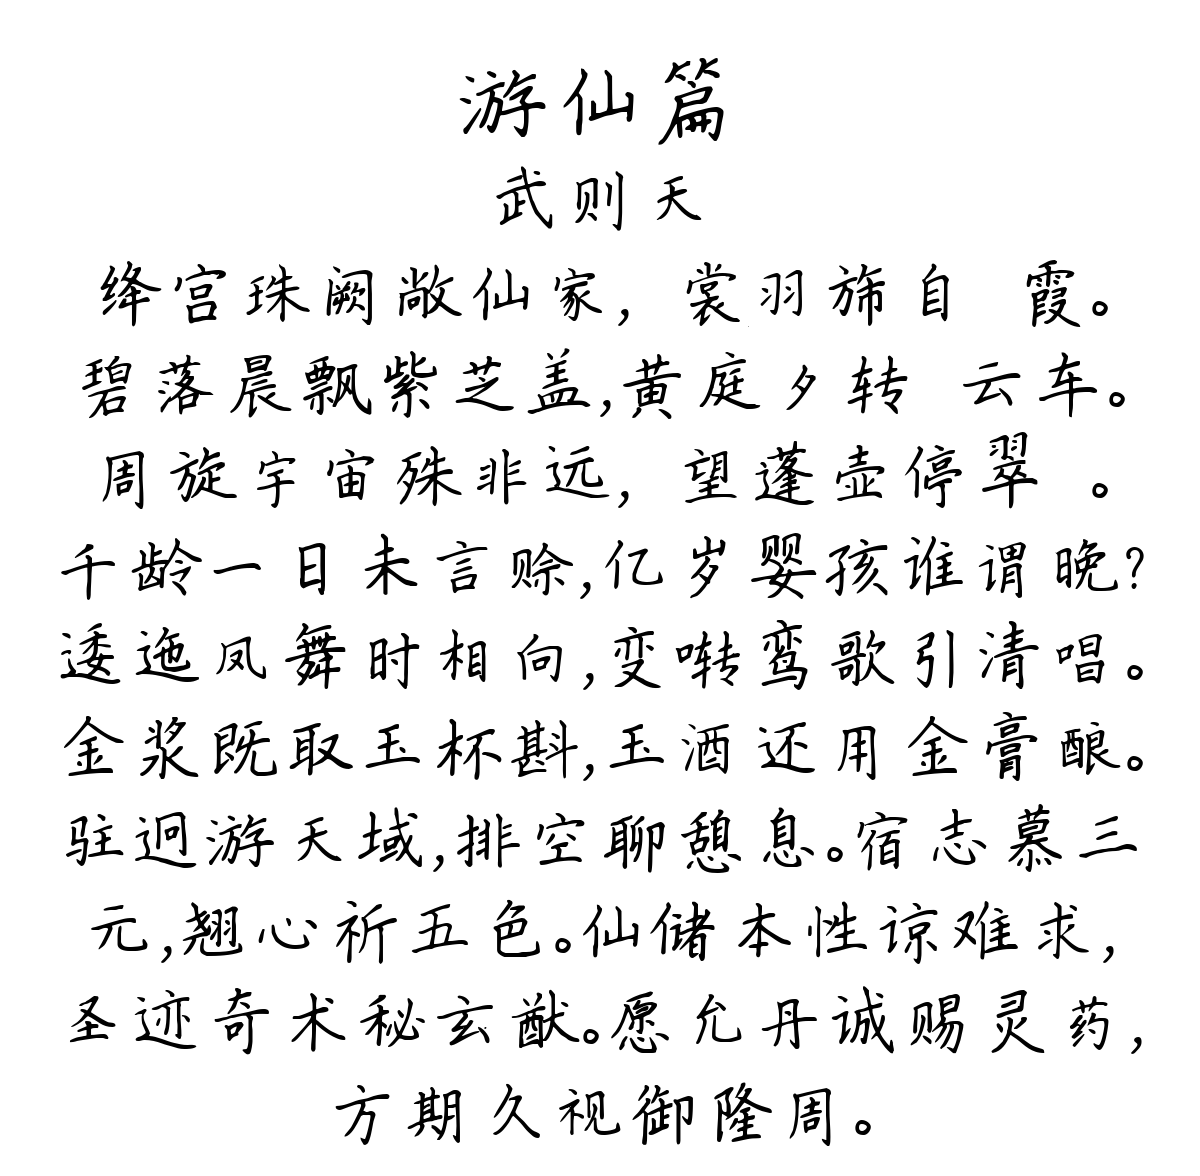 游仙篇
武则天
绛宫珠阙敞仙家，裳羽旆自 霞。
碧落晨飘紫芝盖，黄庭夕转 云车。
周旋宇宙殊非远，望蓬壶停翠 。
千龄一日未言赊，亿岁婴孩谁谓晚?
逶迤凤舞时相向，变啭鸾歌引清唱。
金浆既取玉杯斟，玉酒还用金膏酿。
驻迥游天域，排空聊憩息。宿志慕三
元，翘心祈五色。仙储本性谅难求，
圣迹奇术秘玄猷。愿允丹诚赐灵药，
方期久视御隆周。